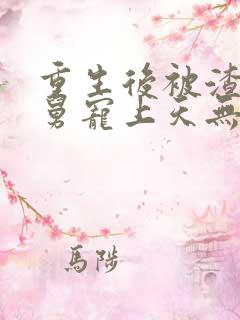 重生後被渣
舅寵上天無
馬陟